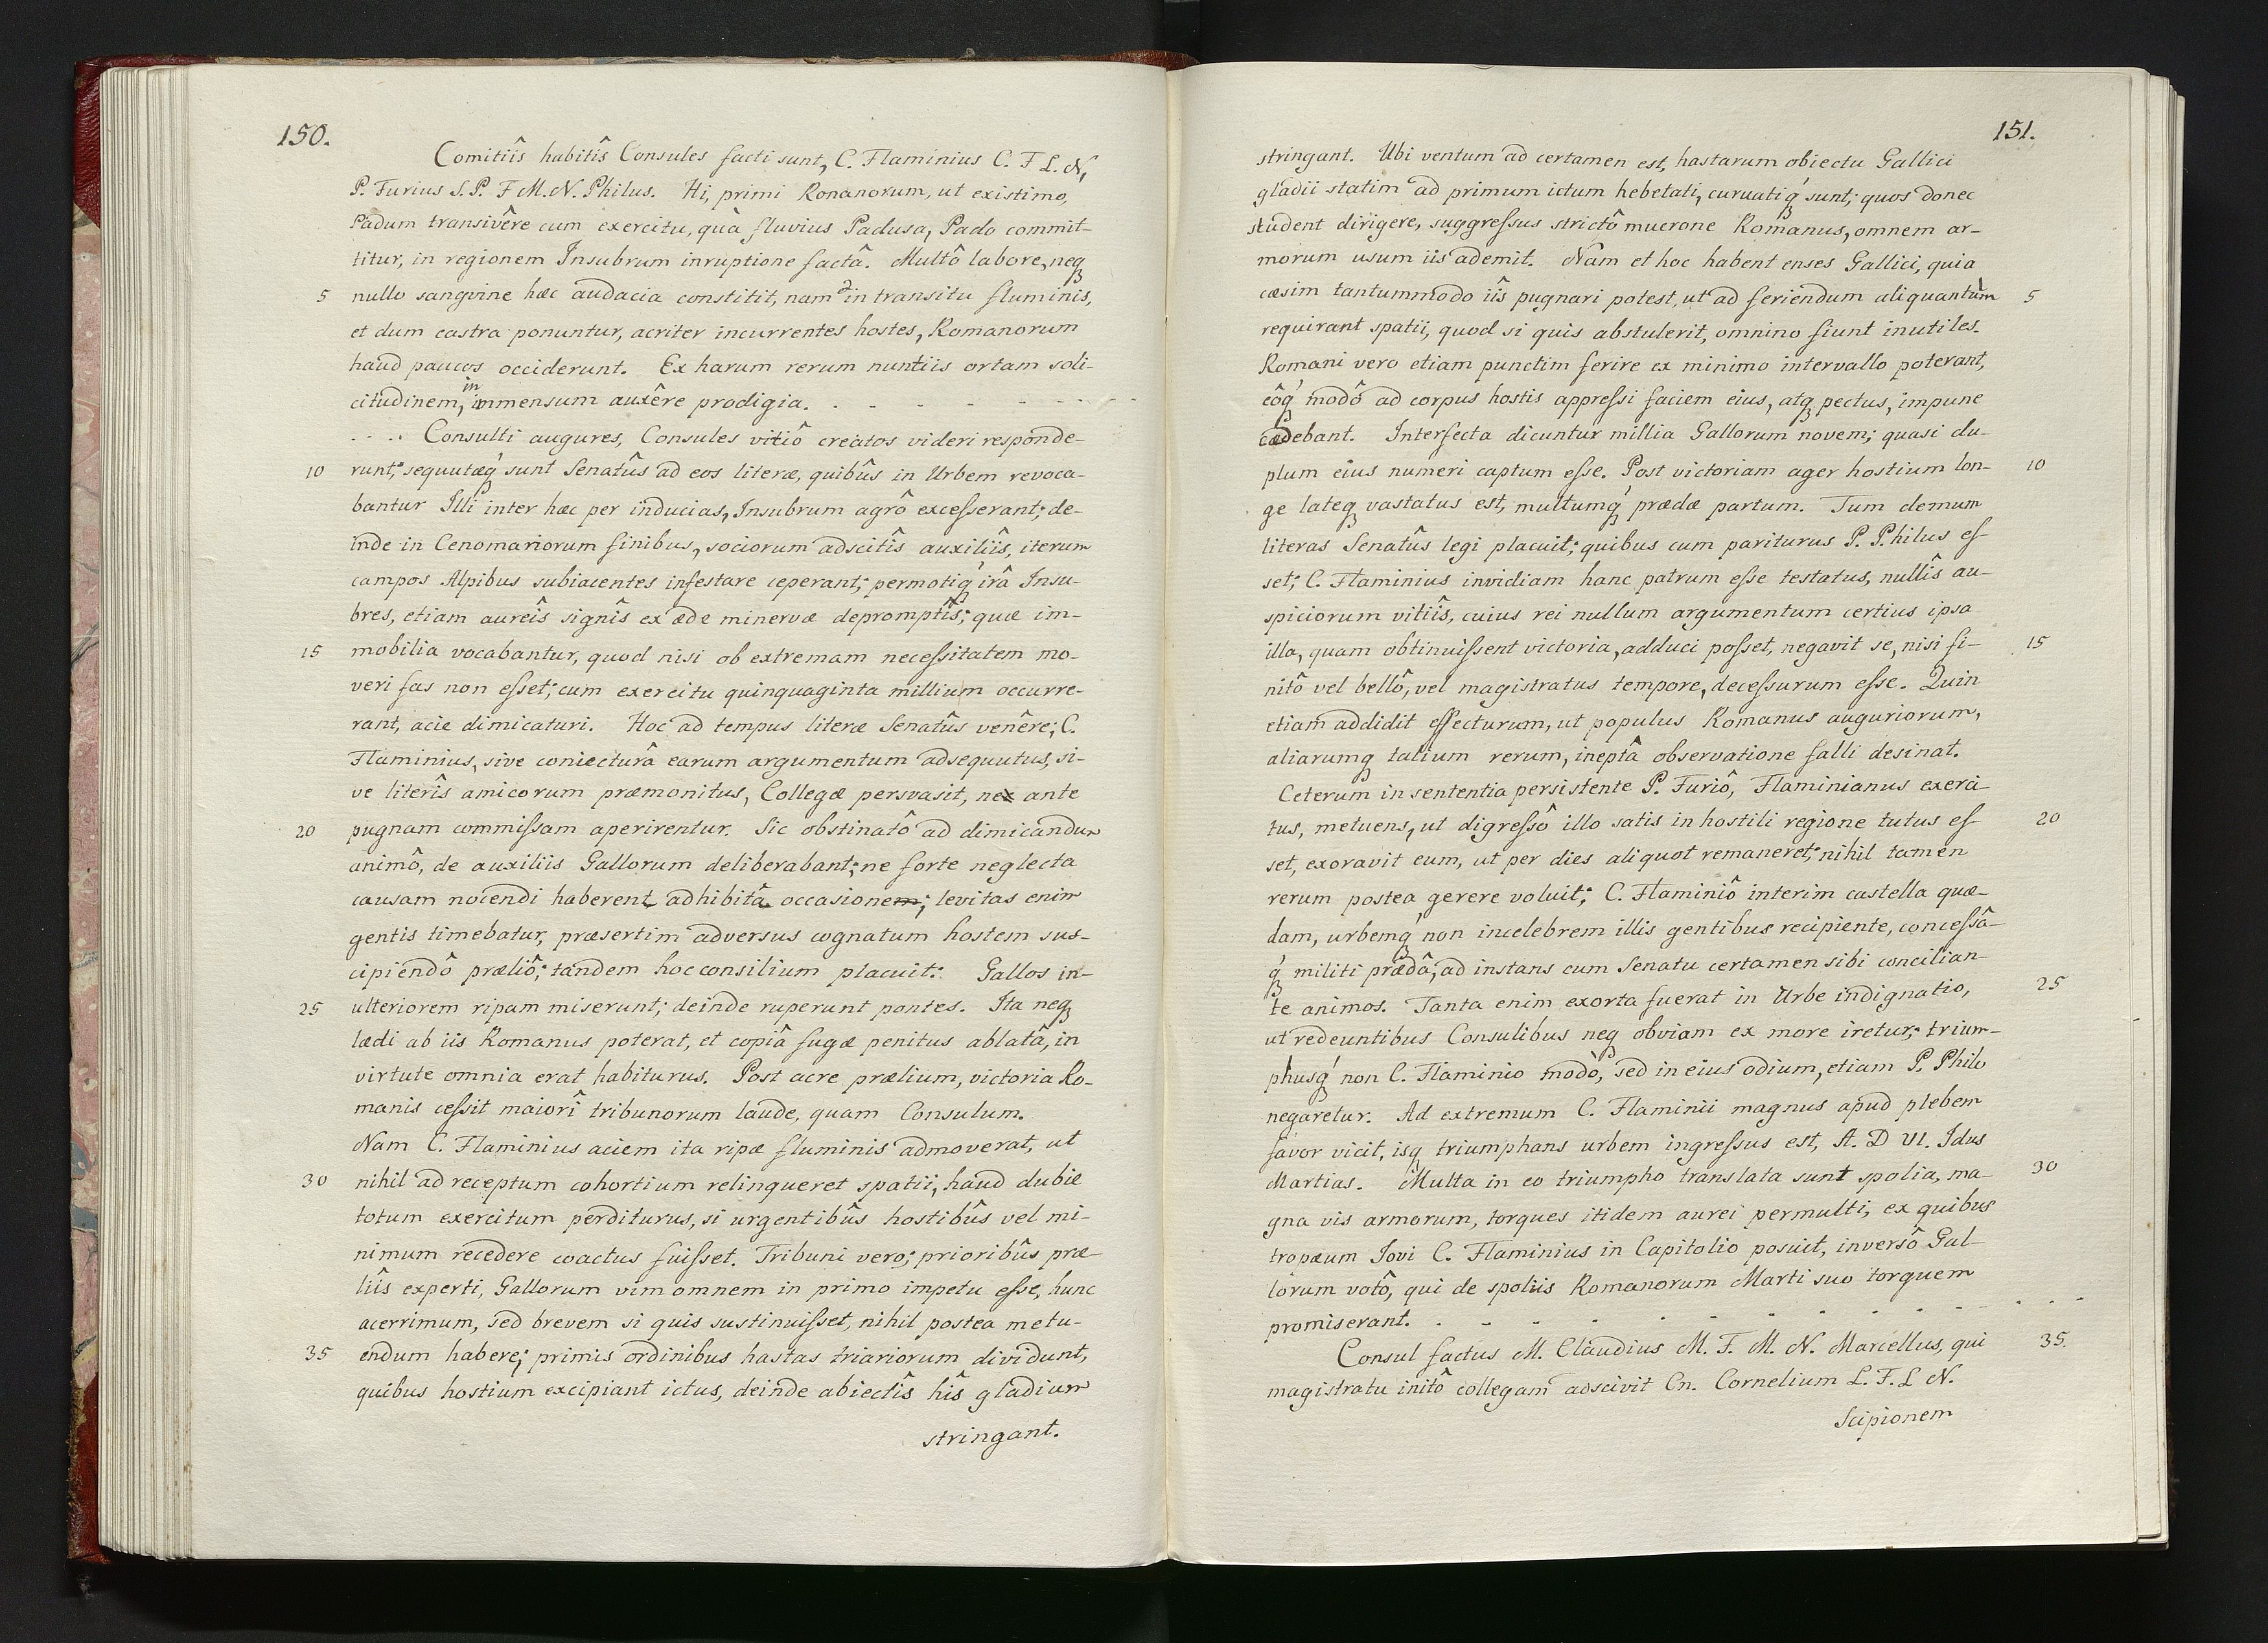 150.
Comitiîs habitîs Consules facti sunt, C. Flaminius C. F L. N,
P. Furius S. P. F M. N. Philus. Hi, primi Romanorum, ut existimo,
Padum transivêre cum exercitu, quà fluvius Padusa, Pado commit-
titur, in regionem Insubrum inruptione factâ. Multô labore, neq
5 nullo sangvine hæc audacia constitit, nam in transitu fluminis,
et dum castra ponuntur, acriter incurrentes hostes, Romanorum
haud paucos occiderunt. Ex harum rerum nuntiis ortam soli-
citudinem, in immensum auxêre prodigia. . - - - - - - -
. . . . Consulti augures, Consules vitiô creatos videri responde-
10 runt: sequutæq́ sunt Senatûs ad eos literæ, quibûs in Urbem revoca-
bantur Illi inter hæc per inducias, Insubrum agrô excesserant; de-
inde in Cenomariorum finibus, sociorum adscitîs auxiliîs, iterum
campos Alpibus subiacentes infestare ceperant; permotiq́ irâ Insu-
bres, etiam aureîs signîs ex æde minervæ depromptîs; quæ im-
15 mobilia vocabantur, quod nisi ob extremam necessitatem mo-
veri fas non esset; cum exercitu quinquaginta millium occurre-
rant, acie dimicaturi. Hoc ad tempus literæ Senatûs venêre; C.
Flaminius, sive coniecturâ earum argumentum adsequutus, si-
ve literîs amicorum præmonitus, Collegæ persvasit, ne ante
20 pugnam commissam aperirentur. Sic obstinatô ad dimicandum
animô, de auxiliis Gallorum deliberabant; ne forte neglecta
causam nocendi haberent adhibitâ occasionem; levitas enim
gentis timebatur, præsertim adversus cognatum hostem sus-
cipiendô præliô; tandem hoc consilium placuit: Gallos in-
25 ulteriorem ripam miserunt; deinde ruperunt pontes. Ita neq
lædi ab iis Romanus poterat, et copiâ fugæ penitus ablatâ, in
virtute omnia erat habiturus. Post acre prælium, victoria Ro-
manis cessit maiorî tribunorum laude, quam Consulum.
Nam C. Flaminius aciem ita ripæ fluminis admoverat, ut
30 nihil ad receptum cohortium relinqueret spatii, haud dubie
totum exercitum perditurus, si urgentibûs hostibûs vel mi-
nimum recedere coactus fuisset. Tribuni vero; prioribûs præ-
liîs experti, Gallorum vim omnem in primo impetu esse, hunc
acerrimum, sed brevem si quis sustinuisset, nihil postea metu-
35 endum habere; primis ordinibus hastas triariorum dividunt,
quibus hostium excipiant ictus, deinde abiectîs hîs gladium
stringant.
151.
stringant. Ubi ventum ad certamen est, hastarum obiectu Gallici
gladii statim ad primum ictum hebetati, curvatiq́ sunt; quos donec
student dirigere, suggressus strictô mucrone Romanus, omnem ar-
morum usum iis ademit. Nam et hoc habent enses Gallici, quia
cæsim tantummodo iîs pugnari potest, ut ad feriendum aliquantùm 5
requirant spatii, quod si quis abstulerit, omnino fiunt inutiles.
Romani vero etiam punctim ferire ex minimo intervallo poterant,
eôq́ modô ad corpus hostis appressi faciem eius, atq pectus, impune
cædebant. Interfecta dicuntur millia Gallorum novem; quasi du-
plum eius numeri captum esse. Post victoriam ager hostium lon- 10
ge lateq vastatus est, multumq́ prædæ partum. Tum demum
literas Senatûs legi placuit; quibus cum pariturus P. Philus es
set; C. Flaminius invidiam hanc patrum esse testatus, nullîs au-
spiciorum vitiîs, cuius rei nullum argumentum certius ipsa
illa, quam obtinuissent victoria, adduci posset, negavit se, nisi fi- 15
nitô vel bellô, vel magistratus tempore, decessurum esse. Quin
etiam addidit effecturum, ut populus Romanus auguriorum,
aliarumq talium rerum, ineptâ observatione falli desinat.
Ceterum in sententia persistente P. Furiô, Flaminianus exerci-
tus, metuens, ut digressô illo satis in hostili regione tutus es 20
set, exoravit eum, ut per dies aliquot remaneret; nihil tamen
rerum postea gerere voluit: C. Flaminiô interim castella quæ-
dam, urbemq́ non incelebrem illis gentibus recipiente, concessâ-
q́ militi prædâ; ad instans cum Senatu certamen sibi concilian-
te animos. Tanta enim exorta fuerat in Urbe indignatio, 25
ut redeuntibus Consulibus neq obviam ex more iretur; trium-
phusq́ non C. Flaminio modò, sed in eius odium, etiam P. Philo
negaretur. Ad extremum C. Flaminii magnus apud plebem
favor vicit, isq triumphans urbem ingressus est, A. D VI. Idus
Martias. Multa in eo triumpho translata sunt spolia, ma- 30
gna vis armorum, torques itidem aurei permulti, ex quibus
tropæum Iovi C. Flaminius in Capitolio posuit, inversô Gal-
lorum votô, qui de spoliis Romanorum Marti suo torquem
promiserant. . - - - - - - - - - - - -
Consul factus M. Claudius M. F. M. N. Marcellus, qui 35.
magistratu initô collegam adscivit Cn. Cornelium L. F. L N.
Scipionem